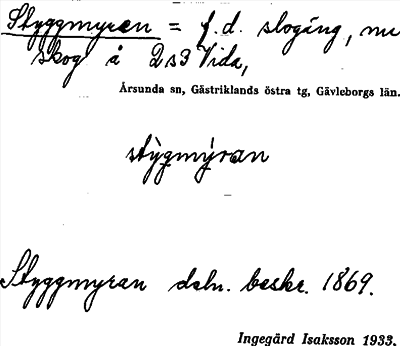 Styggmyran = f.d. slogång, nu
skog å 2s3 Vida,
Årsunda sn, Gästriklands östra tg, Gävleborgs län.
stỳgmỳran
Styggmyran dsln. beskr. 1869.
Ingegärd Isaksson 1933.